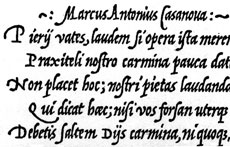 ~: Marcus Antonius Casanova :~
Pierij vates, laudem si opera ista meren
Praxiteli nostro carmina pauca dat
Non placet hoc; nostri pietas laudanda
Qui dicat hæc; nisi vos forsan uterq;
Debetis saltem Dijs carmina, ni quoqs,